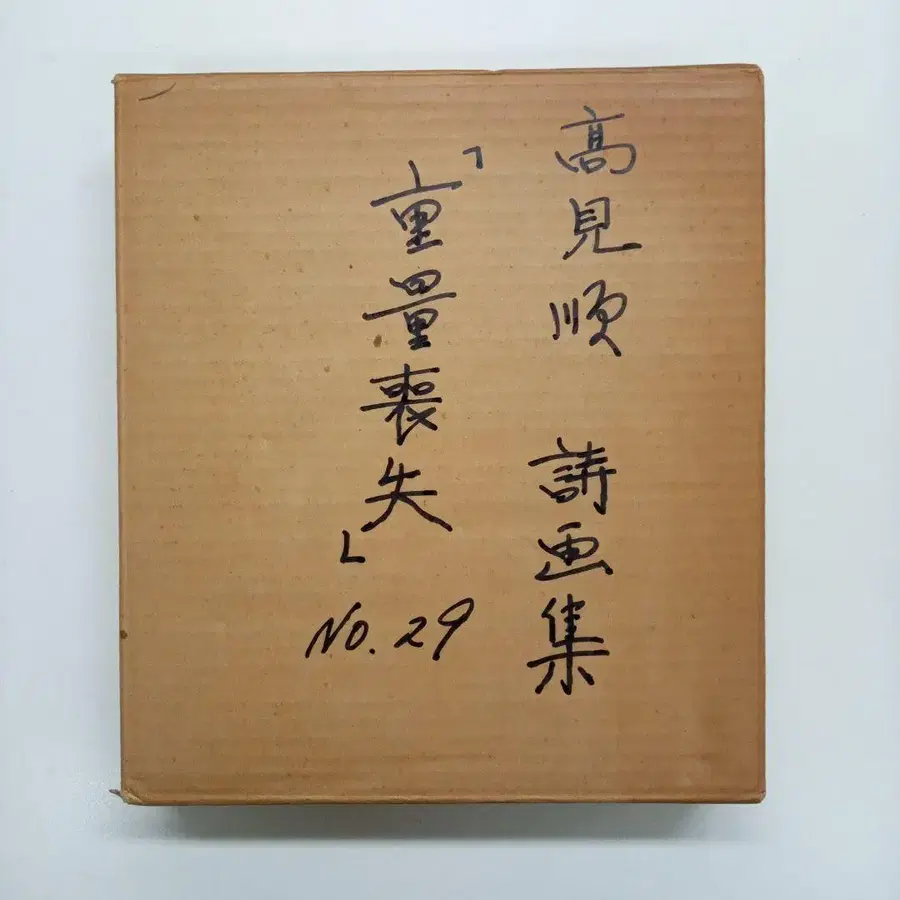 高見順 詩画集
「重量喪失」
No. 29